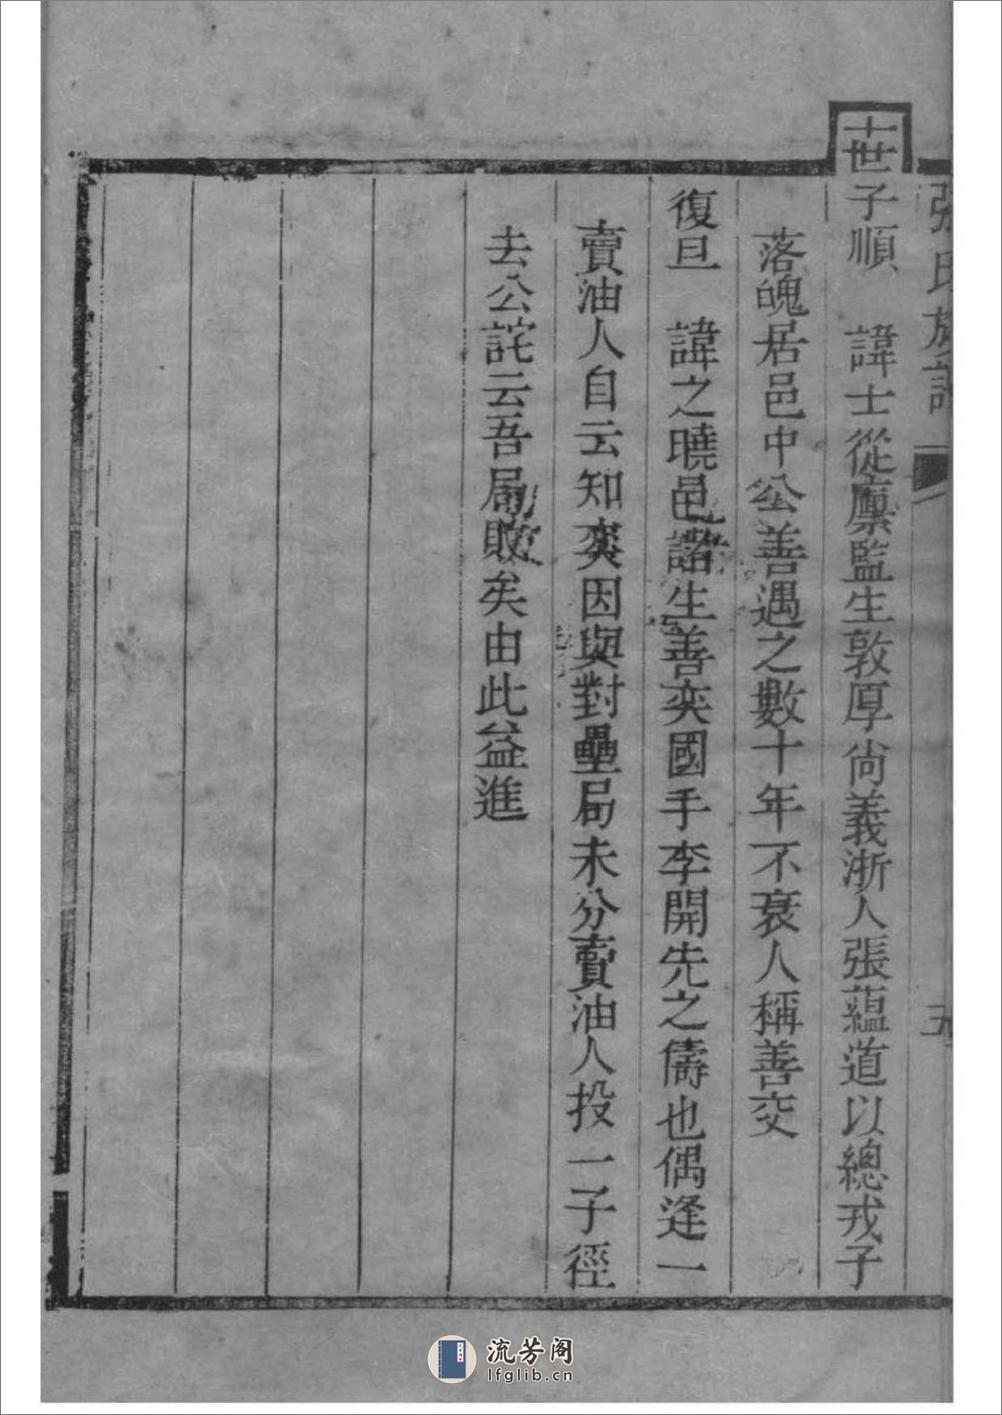 張氏族譜
五
十世
子順 諱士從廩監生敦厚尚義浙人張蘊道以總戎子
落魄居邑中公善遇之數十年不衰人稱善交
復旦 諱之曉邑諸生善奕國手李開先之儔也偶逢一
賣油人自云知奕因與對壘局未分賣油人投一子徑
去公詫云吾局敗矣由此益進
流芳阁
lfglib.cn